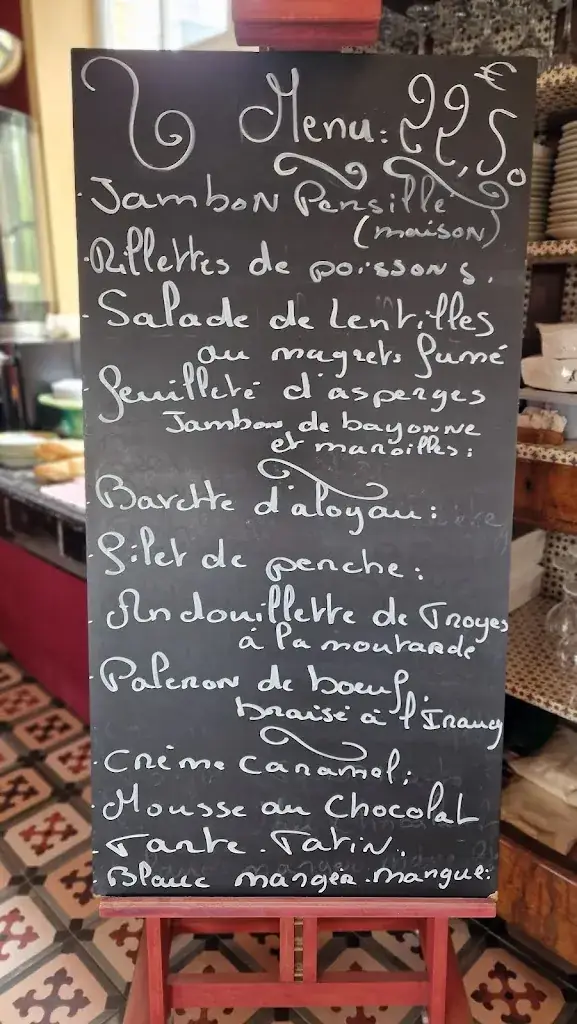 Menu: 22,50 €
Jambon Persillé
(maison)
Rillettes de poissons.
Salade de Lentilles
au magrets fumé
feuilleté d'asperges
Jambon de bayonne
et maroilles:
Bavette d'aloyau:
filet de perche:
Andouillette de Troyes
à la moutarde
Paleron de boeuf
braisé à l'Irancy
Crème Caramel;
Mousse au Chocolat
Tarte.Tatin.
Blanc manger.mangue: